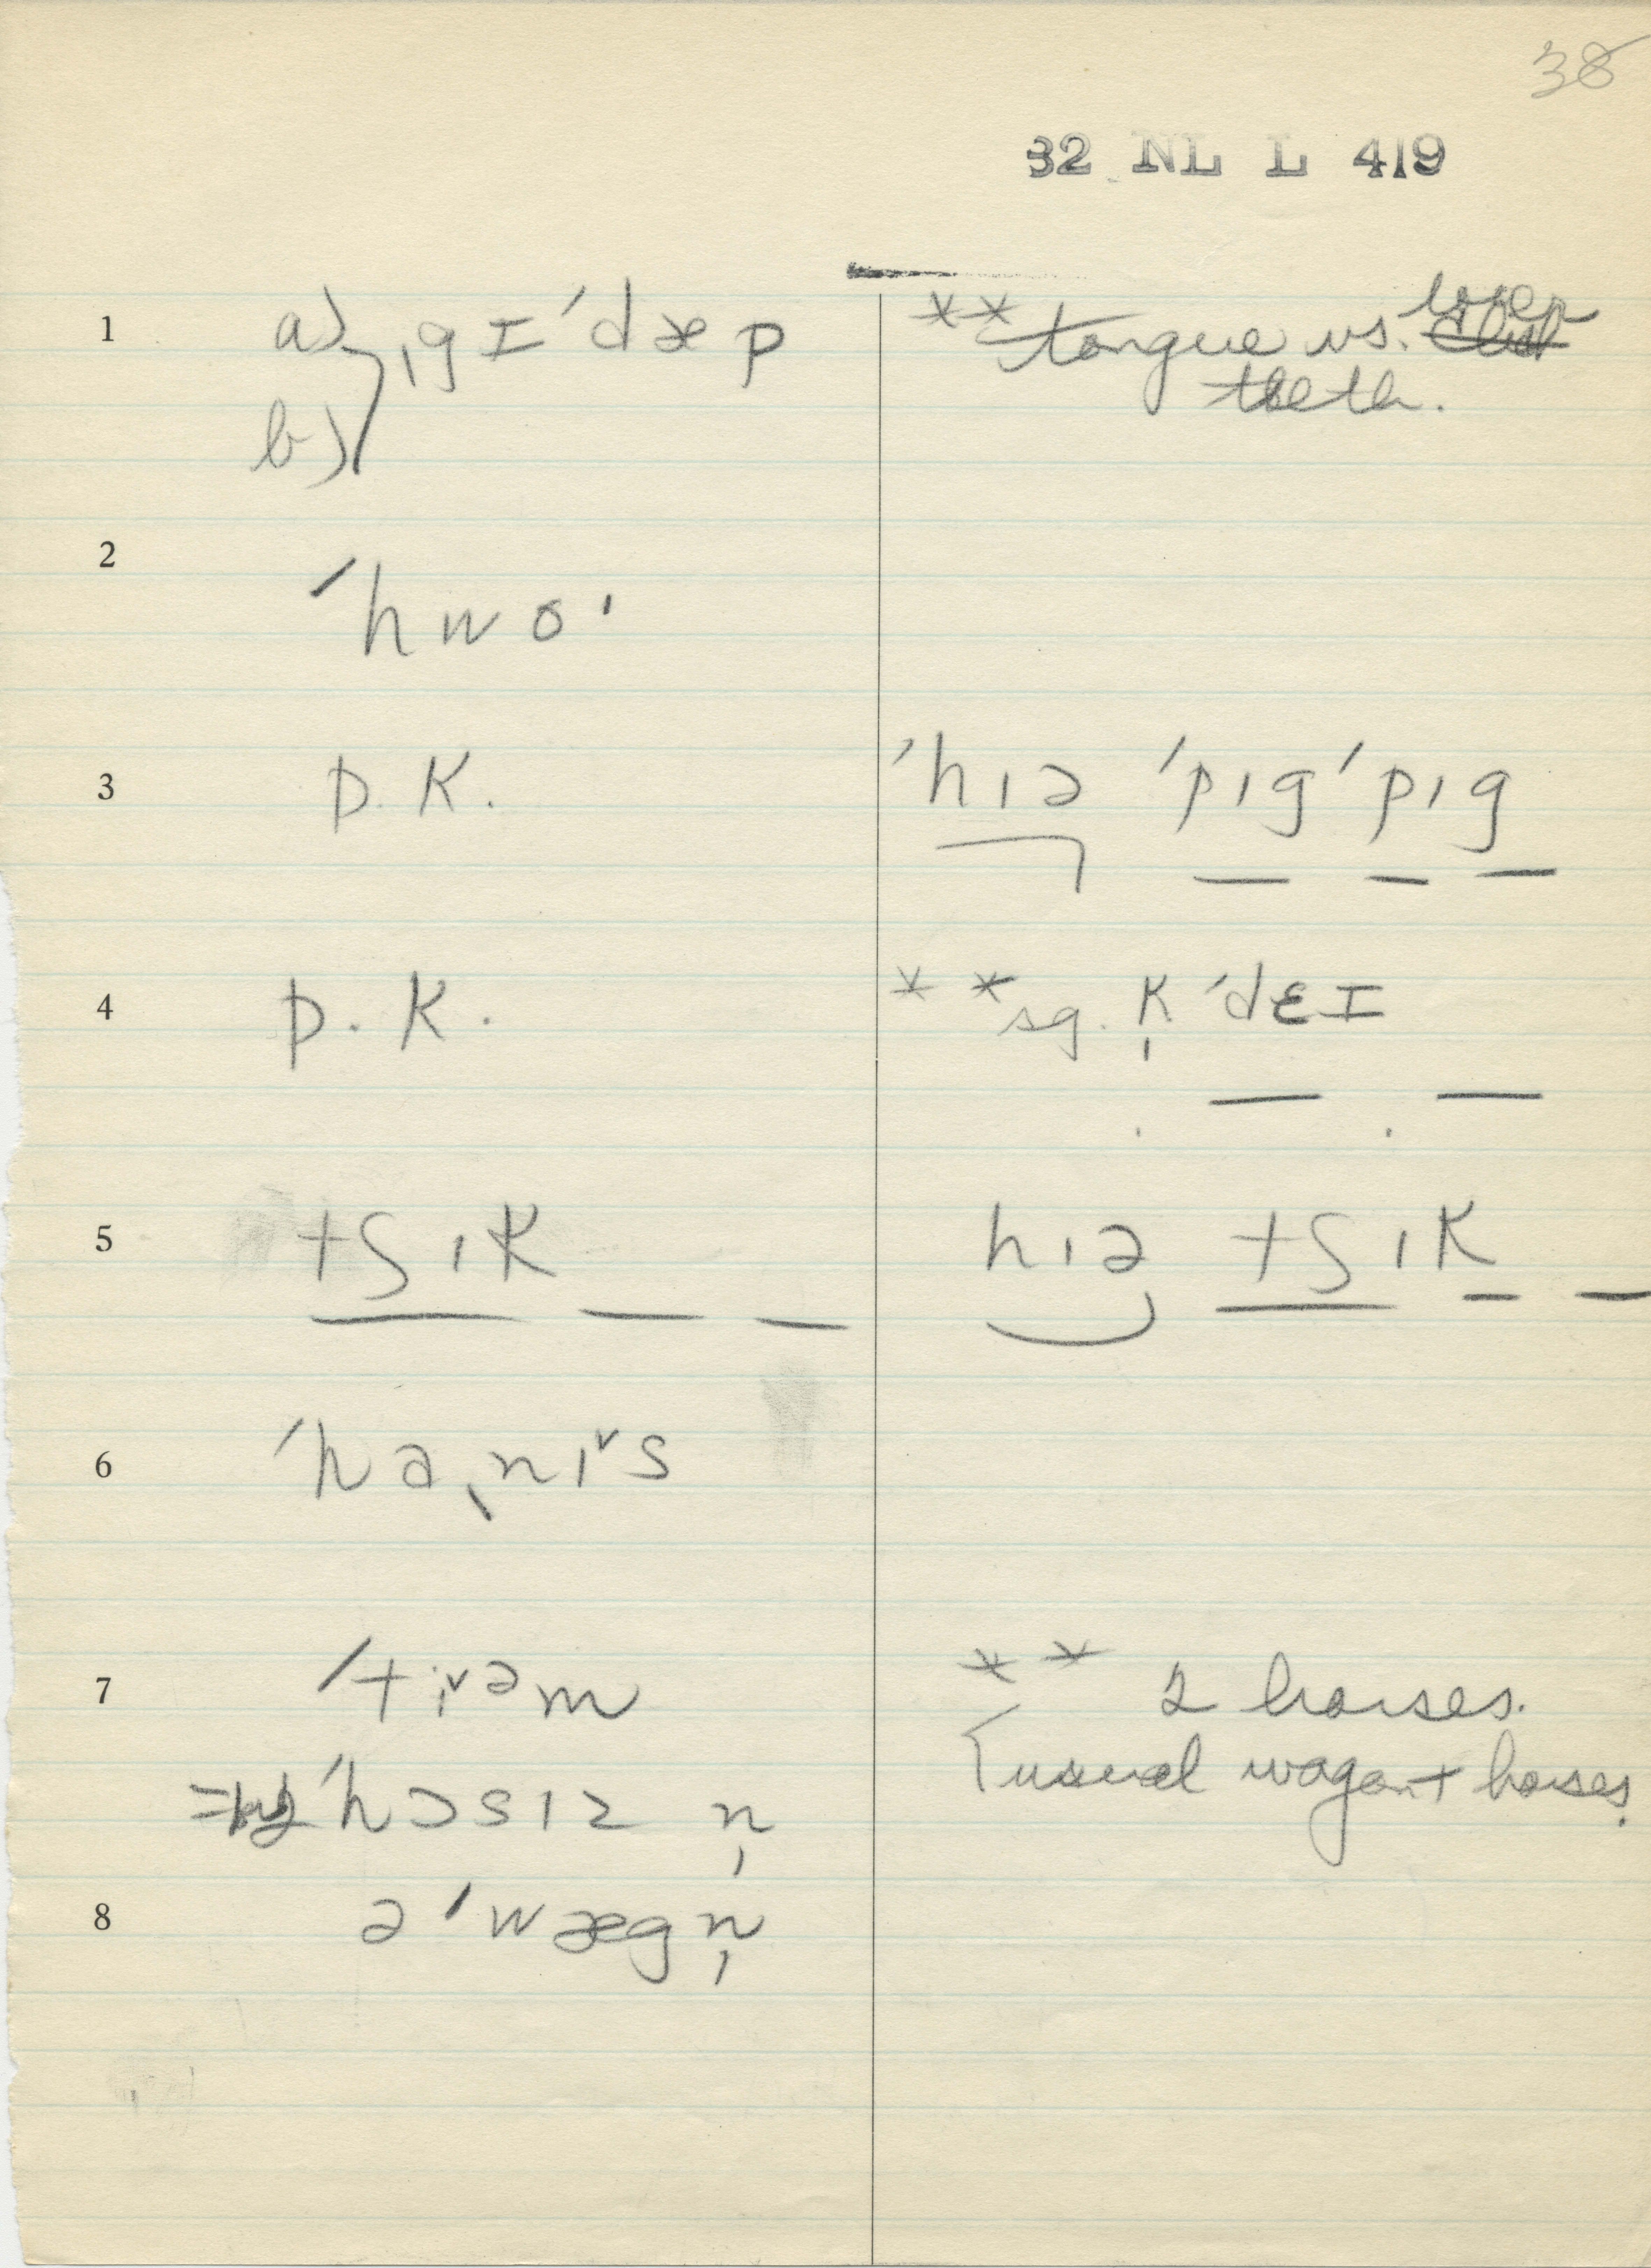 38
32 NL L 419
1 a) ˌgɪˈdæp ** tongue vs. lower
b) teeth.
2 ˈhwo·
3 D.K. ˈhɪə ˈpɪgˈpɪg
4 D.K. ** sg. k̩ˈdɛɪ
5 tʃɪk hɪə tʃɪk
6 ˈhaˌni˅s
7 ˈti˅əm ** 2 horses.
= ˈhɔsɪz n̩ [usual wagon + horses.
8 əˈwægn̩